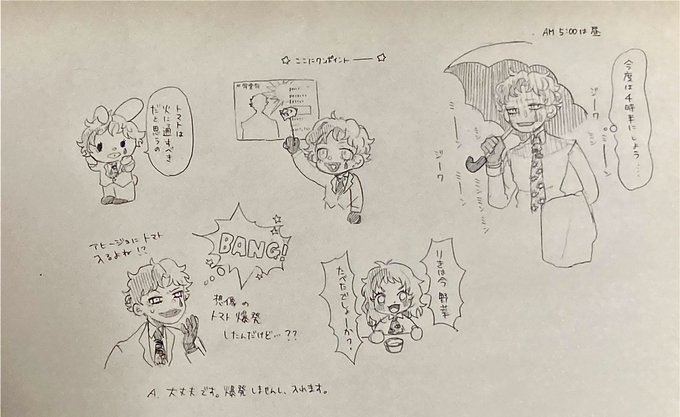 AM 5:00は昼
☆ ここにワンポイント ― ☆
トマトは
火に通すべき
だと思うの
今度は
4時半に
しよう…
ジーワ
ジーワ
ミーン
ミーン
ミーン
ミンミンミン
アヒージョにトマト
入るよね!?
BANG!
想像の
トマト爆発
したんだけど…??
は今 野菜
たべたでしょーか?
A. 大丈夫です。爆発しませんし、入れます。